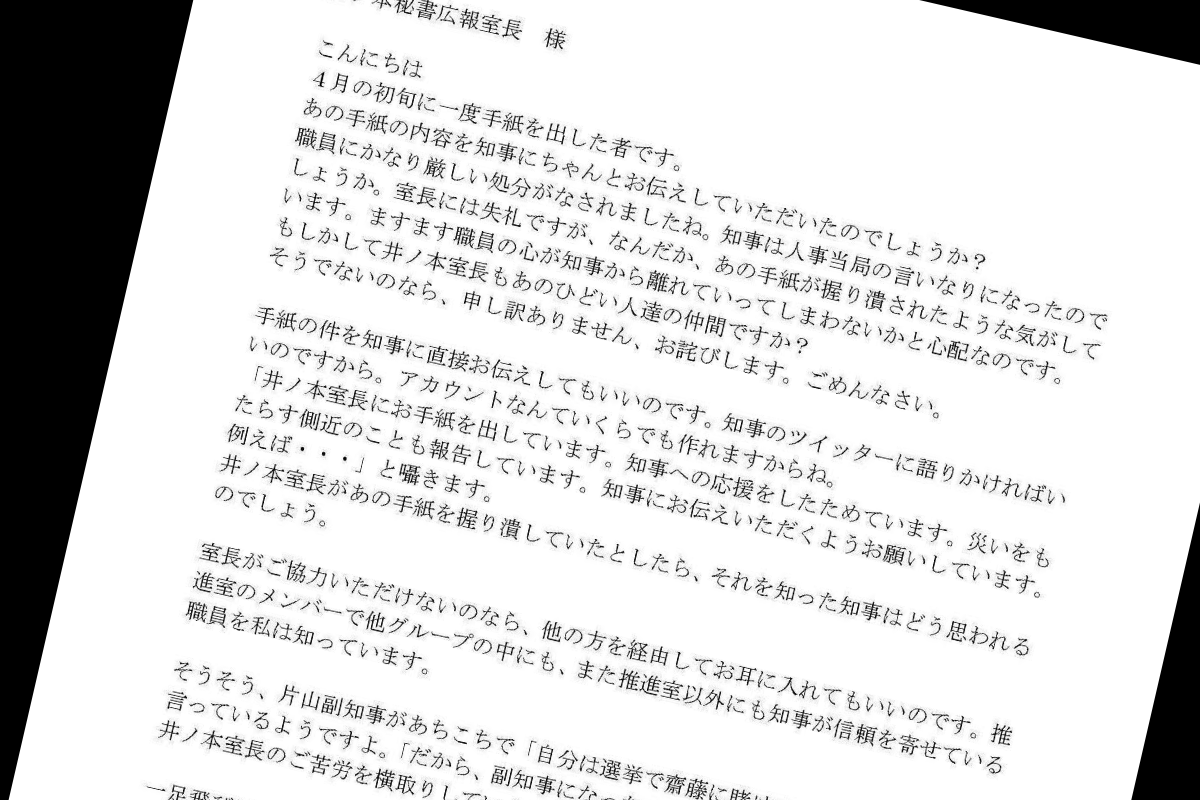 本秘書広報室長　様
こんにちは
４月の初旬に一度手紙を出した者です。
あの手紙の内容を知事にちゃんとお伝えしていただいたのでしょうか？
職員にかなり厳しい処分がなされましたね。知事は人事当局の言いなりになったので
しょうか。室長には失礼ですが、なんだか、あの手紙が握り潰されたような気がして
います。ますます職員の心が知事から離れていってしまわないかと心配なのです。
もしかして井ノ本室長もあのひどい人達の仲間ですか？
そうでないのなら、申し訳ありません、お詫びします。ごめんなさい。
手紙の件を知事に直接お伝えしてもいいのです。知事のツイッターに語りかければい
いのですから。アカウントなんていくらでも作れますからね。
「井ノ本室長にお手紙を出しています。知事への応援をしたためています。災いをも
たらす側近のことも報告しています。知事にお伝えいただくようお願いしています。
例えば・・・」と囁きます。
井ノ本室長があの手紙を握り潰していたとしたら、それを知った知事はどう思われる
のでしょう。
室長がご協力いただけないのなら、他の方を経由してお耳に入れてもいいのです。推
進室のメンバーで他グループの中にも、また推進室以外にも知事が信頼を寄せている
職員を私は知っています。
そうそう、片山副知事があちこちで「自分は選挙で齋藤に賭け
言っているようですよ。「だから、副知事になっ
井ノ本室長のご苦労を横取りして
一足飛び